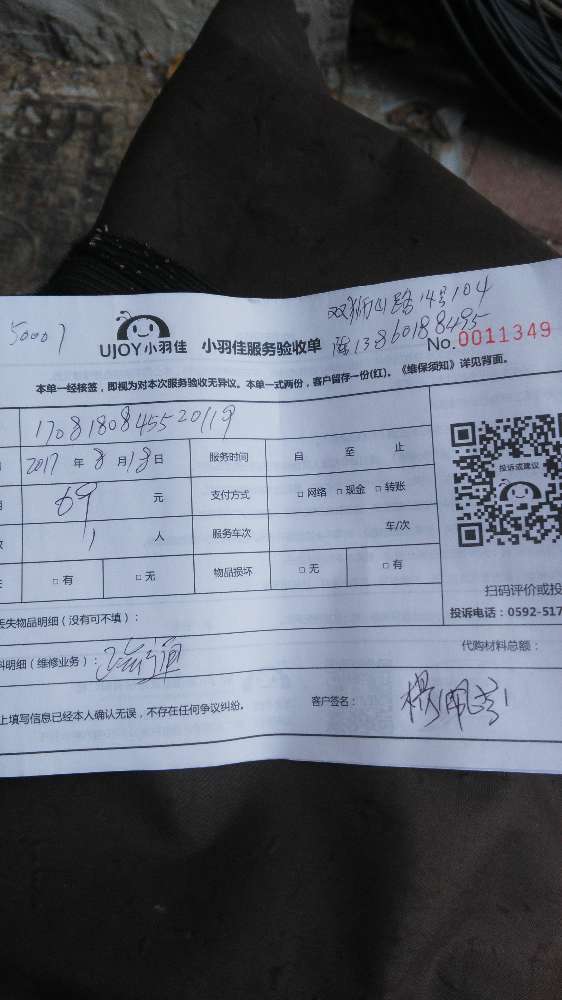 双狮山路14号104
50007
陈13860188485
UJOY小羽佳 小羽佳服务验收单 No.0011349
本单一经核签，即视为对本次服务验收无异议。本单一式两份，客户留存一份(红)。《维保须知》详见背面。
170818084552019
2017 年 8 月 18 日 服务时间 自 至 止
投诉或建议
69 元 支付方式 □ 网络 □ 现金 □ 转账
1 人 服务车次 车/次
□ 有 □ 无 物品损坏 □ 无 □ 有
扫码评价或投
失物品明细（没有可不填）：
投诉电话：0592-517
料明细（维修业务）： 代购材料总额：
上填写信息已经本人确认无误，不存在任何争议纠纷。 客户签名：